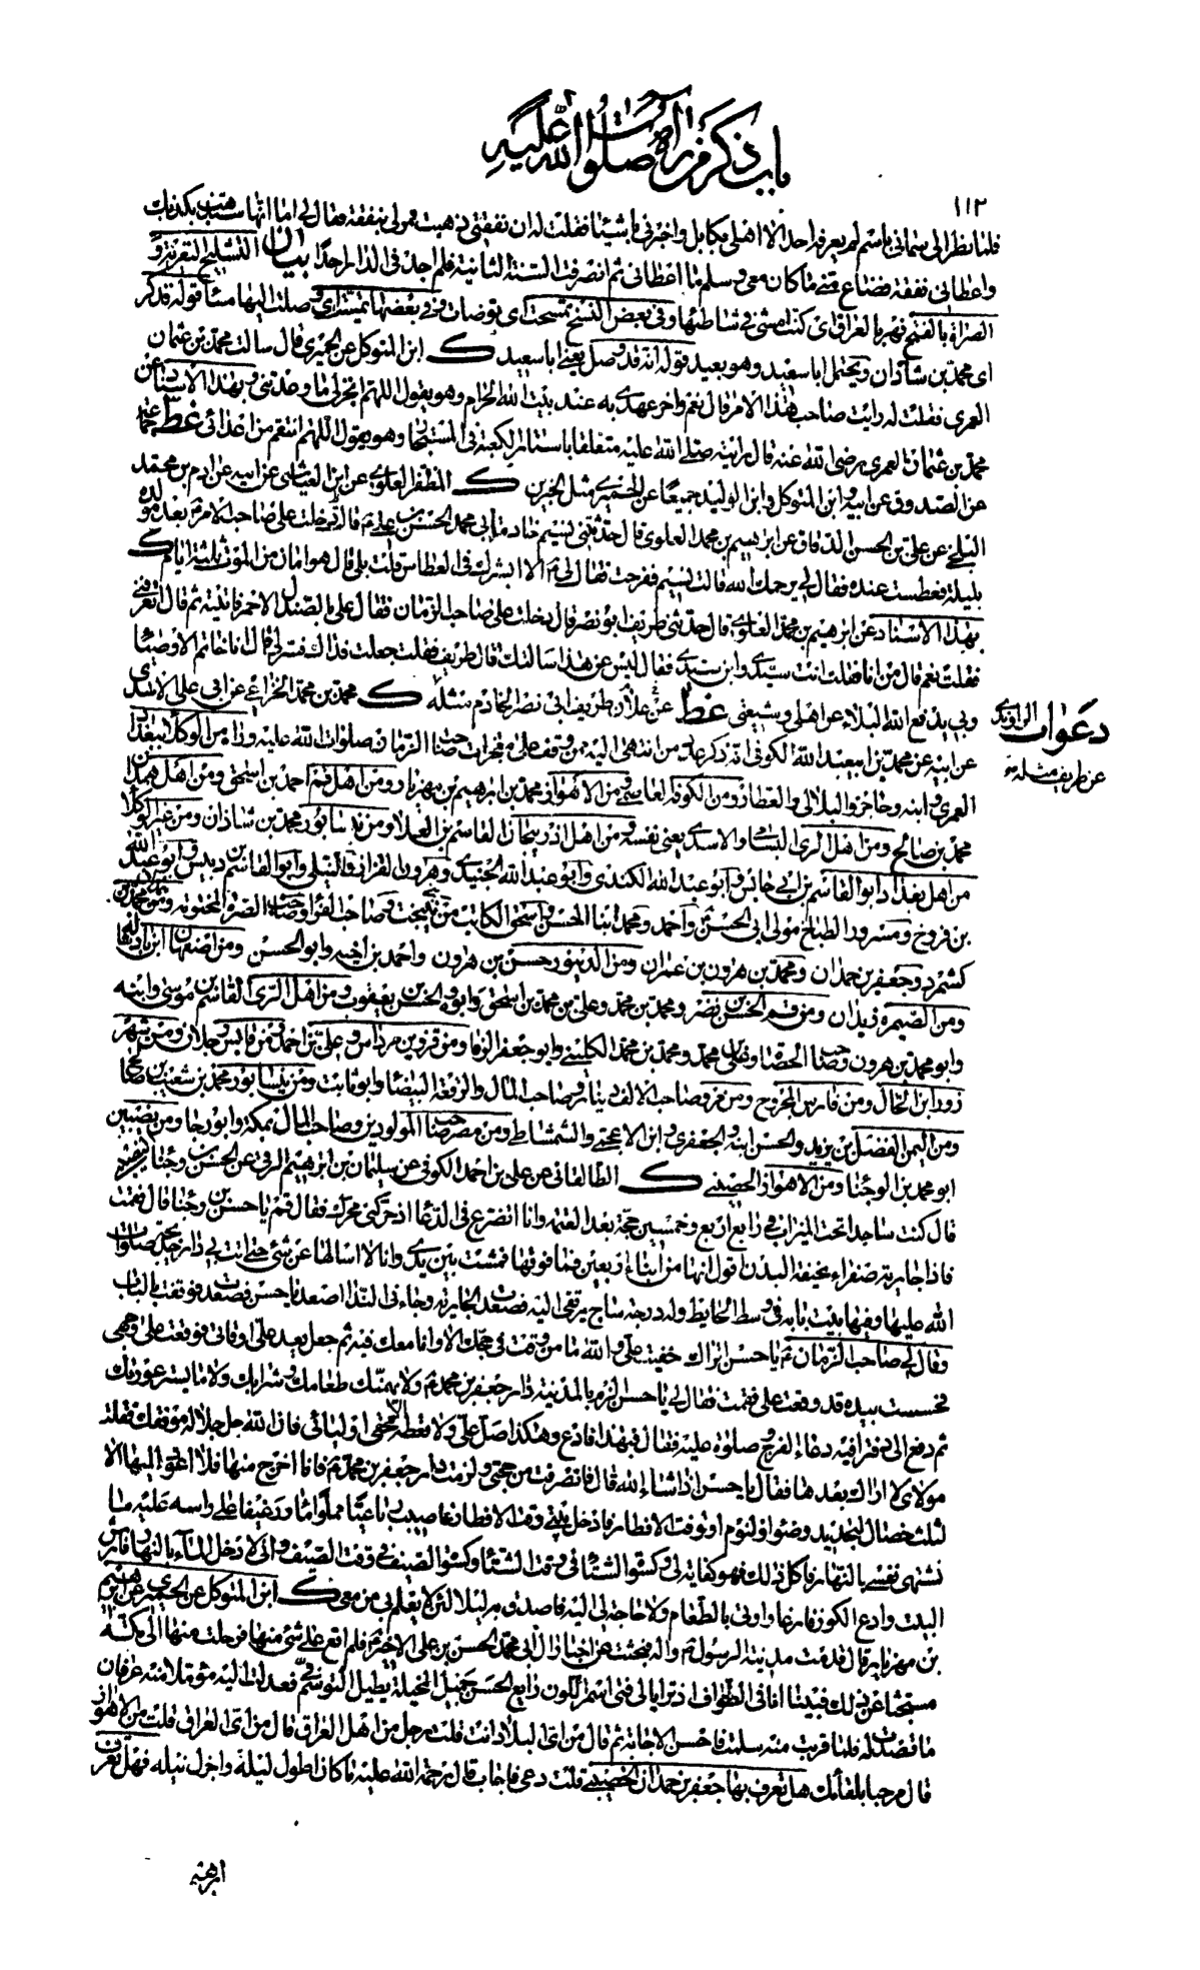 باب ذكر من رآه صلوات الله عليه
١١٢
فلما نظر الي سماني باسم لم يعرفه احد الا اهلي بكابل واخبرني باشياء فقلت له ان نفقتي ذهبت فمر لي بنفقة فقال لي اما انها ستذهب بكذبك
واعطاني نفقة فضاع مني ما كان معي وسلم ما اعطاني ثم انصرفت السنة الثانية فلم اجد في الدار احدا بيان التشليح التعرية و
الصراة بالفتح نهر بالعراق اي كنت امشي في شاطئها وفي بعض النسخ تمسحت اي توضات وفي بعضها تمشيت اي وصلت اليها مشيا قوله قد ذكر
اي محمد بن شاذان ويحتمل ابا سعيد وهو بعيد قوله انه قد وصل يعني ابا سعيد ك ابن المتوكل عن الحميري قال سالت محمد بن عثمان
العمري فقلت له رايت صاحب هذا الامر قال نعم واخر عهدي به عند بيت الله الحرام وهو يقول اللهم انجز لي ما وعدتني وبهذا الاسناد عن
محمد بن عثمان العمري رضي الله عنه قال رايته صلى الله عليه متعلقا باستار الكعبة في المستجار وهو يقول اللهم انتقم من اعدائي غط جماعة
عن الصدوق عن ابيه وابن المتوكل وابن الوليد جميعا عن الحميري مثل الخبرين ك المظفر العلوي عن ابن العياشي عن ابيه عن ادم بن محمد
البلخي عن علي بن الحسن الدقاق عن ابرهيم بن محمد العلوي قال حدثتني نسيم خادمة ابي محمد الحسن بن علي ع قالت دخلت على صاحب الامر ع بعد مولده
بليلة فعطست عنده فقال لي يرحمك الله قالت نسيم ففرحت فقال لي ع الا ابشرك في العطاس قلت بلى قال هو امان من الموت ثلثة ايام ك
بهذا الاسناد عن ابرهيم بن محمد العلوي قال حدثني طريف ابو نصر قال دخلت على صاحب الزمان فقال علي بالصندل الاحمر فاتيته ثم قال اتعرفني
فقلت نعم قال من انا فقلت انت سيدي وابن سيدي فقال ليس عن هذا سالتك قال طريف فقلت جعلت فداك فسر لي قال انا خاتم الاوصياء
وبي يدفع الله البلاء عن اهلي وشيعتي غط عن علان عن طريف ابي نصر الخادم مثله ك محمد بن محمد الخزاعي عن ابي علي الاسدي
دعوات الراوندي
عن طريف مثله
عن ابيه عن محمد بن ابيعبد الله الكوفي انه ذكر عدد من انتهى اليه ممن وقف على معجزات صاحب الزمان صلوات الله عليه وراه من الوكلاء ببغداد
العمري وابنه وحاجز والبلالي والعطار ومن الكوفة العاصمي ومن الاهواز محمد بن ابرهيم بن مهزيار ومن اهل قم احمد بن اسحق ومن اهل همدان
محمد بن صالح ومن اهل الري البسامي والاسدي يعني نفسه ومن اهل اذربيجان القاسم بن العلا ومن نيسابور محمد بن شاذان ومن غير الوكلاء
من اهل بغداد ابو القاسم بن ابي حابس وابو عبد الله الكندي وابو عبد الله الجنيدي وهرون القزاز والنيلي وابو القاسم بن دبيس وابو عبد الله
بن فروخ ومسرور الطباخ مولى ابي الحسن ع واحمد ومحمد ابنا الحسن واسحق الكاتب من بني نيبخت وصاحب الفراء وصاحب الصرة المختومة ومن همدان محمد بن
كشمرد وجعفر بن حمدان ومحمد بن هرون بن عمران ومن الدينور حسن بن هرون واحمد بن اخيه وابو الحسن ومن اصفهان ابن باداشاله
ومن الصيمرة زيدان ومن قم الحسن بن نصر ومحمد بن محمد وعلي بن محمد بن اسحق وابوه والحسن بن يعقوب ومن اهل الري القاسم بن موسى وابنه
وابو محمد بن هرون وصاحب الحصاة وعلي بن محمد ومحمد بن محمد الكليني وابو جعفر الرفا ومن قزوين مرداس وعلي بن احمد ومن قابس رجلان ومن شهر
زور ابن الخال ومن فارس المجروح ومن مرو صاحب الالف دينار وصاحب المال والرقعة البيضاء وابو ثابت ومن نيسابور محمد بن شعيب بن صالح
ومن اليمن الفضل بن يزيد والحسن ابنه والجعفري وابن الاعجمي والشمشاطي ومن مصر صاحب المولودين وصاحب المال بمكة وابو رجا ومن نصيبين
ابو محمد بن الوجنا ومن الاهواز الحصيني ك الطالقاني عن علي بن احمد الكوفي عن سليمان بن ابرهيم الرقي عن الحسن بن وجنا النصيبي
قال كنت ساجدا تحت الميزاب في رابع اربع وخمسين حجة بعد العتمة وانا اتضرع في الدعا اذ حركني محرك فقال قم يا حسن بن وجنا قال فقمت
فاذا جارية صفراء نحيفة البدن اقول انها من ابناء اربعين فما فوقها فمشت بين يدي وانا لا اسالها عن شئ حتى اتت بي دار خديجة صلوات
الله عليها وفيها بيت بابه في وسط الحايط وله درجة ساج يرتقى اليه فصعدت الجارية وجاءني النداء اصعد يا حسن فصعدت فوقفت بالباب
وقال لي صاحب الزمان ع يا حسن اتراك خفيت علي والله ما من وقت في حجك الا وانا معك فيه ثم جعل يعد علي اوقاتي فوقعت على وجهي
فحسست بيده قد وقعت علي فقمت فقال لي يا حسن الزم بالمدينة دار جعفر بن محمد ع ولا يهمنك طعامك وشرابك ولا ما يستر عورتك
ثم دفع الي دفترا فيه دعاء الفرج وصلوة عليه فقال فبهذا فادع وهكذا صل علي ولا تعطه الا محقي اوليائي فان الله جل جلاله موفقك فقلت
مولاي لا اراك بعدها فقال يا حسن اذا شاء الله قال فانصرفت من حجتي ولزمت دار جعفر بن محمد ع فانا اخرج منها فلا اعود اليها الا
لثلث خصال لتجديد وضوء او لنوم او لوقت الافطار فادخل بيتي وقت الافطار فاصيب رباعيا مملوا ماء ورغيفا على راسه عليه ما
تشتهي نفسي بالنهار فاكل ذلك فهو كفاية لي وكسوة الشتاء في وقت الشتاء وكسوة الصيف في وقت الصيف واني لادخل الماء بالنهار فارش
البيت وادع الكوز فارغا واوتى بالطعام ولا حاجة لي اليه فاصدق به ليلا لئلا يعلم بي من معي ك ابن المتوكل عن الحميري عن ابرهيم
بن مهزيار قال قدمت مدينة الرسول ص واله فبحثت عن اخبار ال ابي محمد الحسن بن علي الاخير ع فلم اقع على شئ منها فرحلت منها الى مكة
مستبحثا عن ذلك فبينا انا في الطواف اذ ترايا لي فتى اسمر اللون رايع الحسن جميل المخيلة يطيل التوسم في فعدلت اليه موملا منه عرفان
ما قصدت له فلما قربت منه سلمت فاحسن الاجابة ثم قال من اي البلاد انت قلت رجل من اهل العراق قال من اي العراق قلت من الاهواز
قال مرحبا بلقائك هل تعرف بها جعفر بن حمدان الحصيني قلت دعي فاجاب قال رحمة الله عليه ما كان اطول ليله واجزل نيله فهل تعرف
ابرهيم